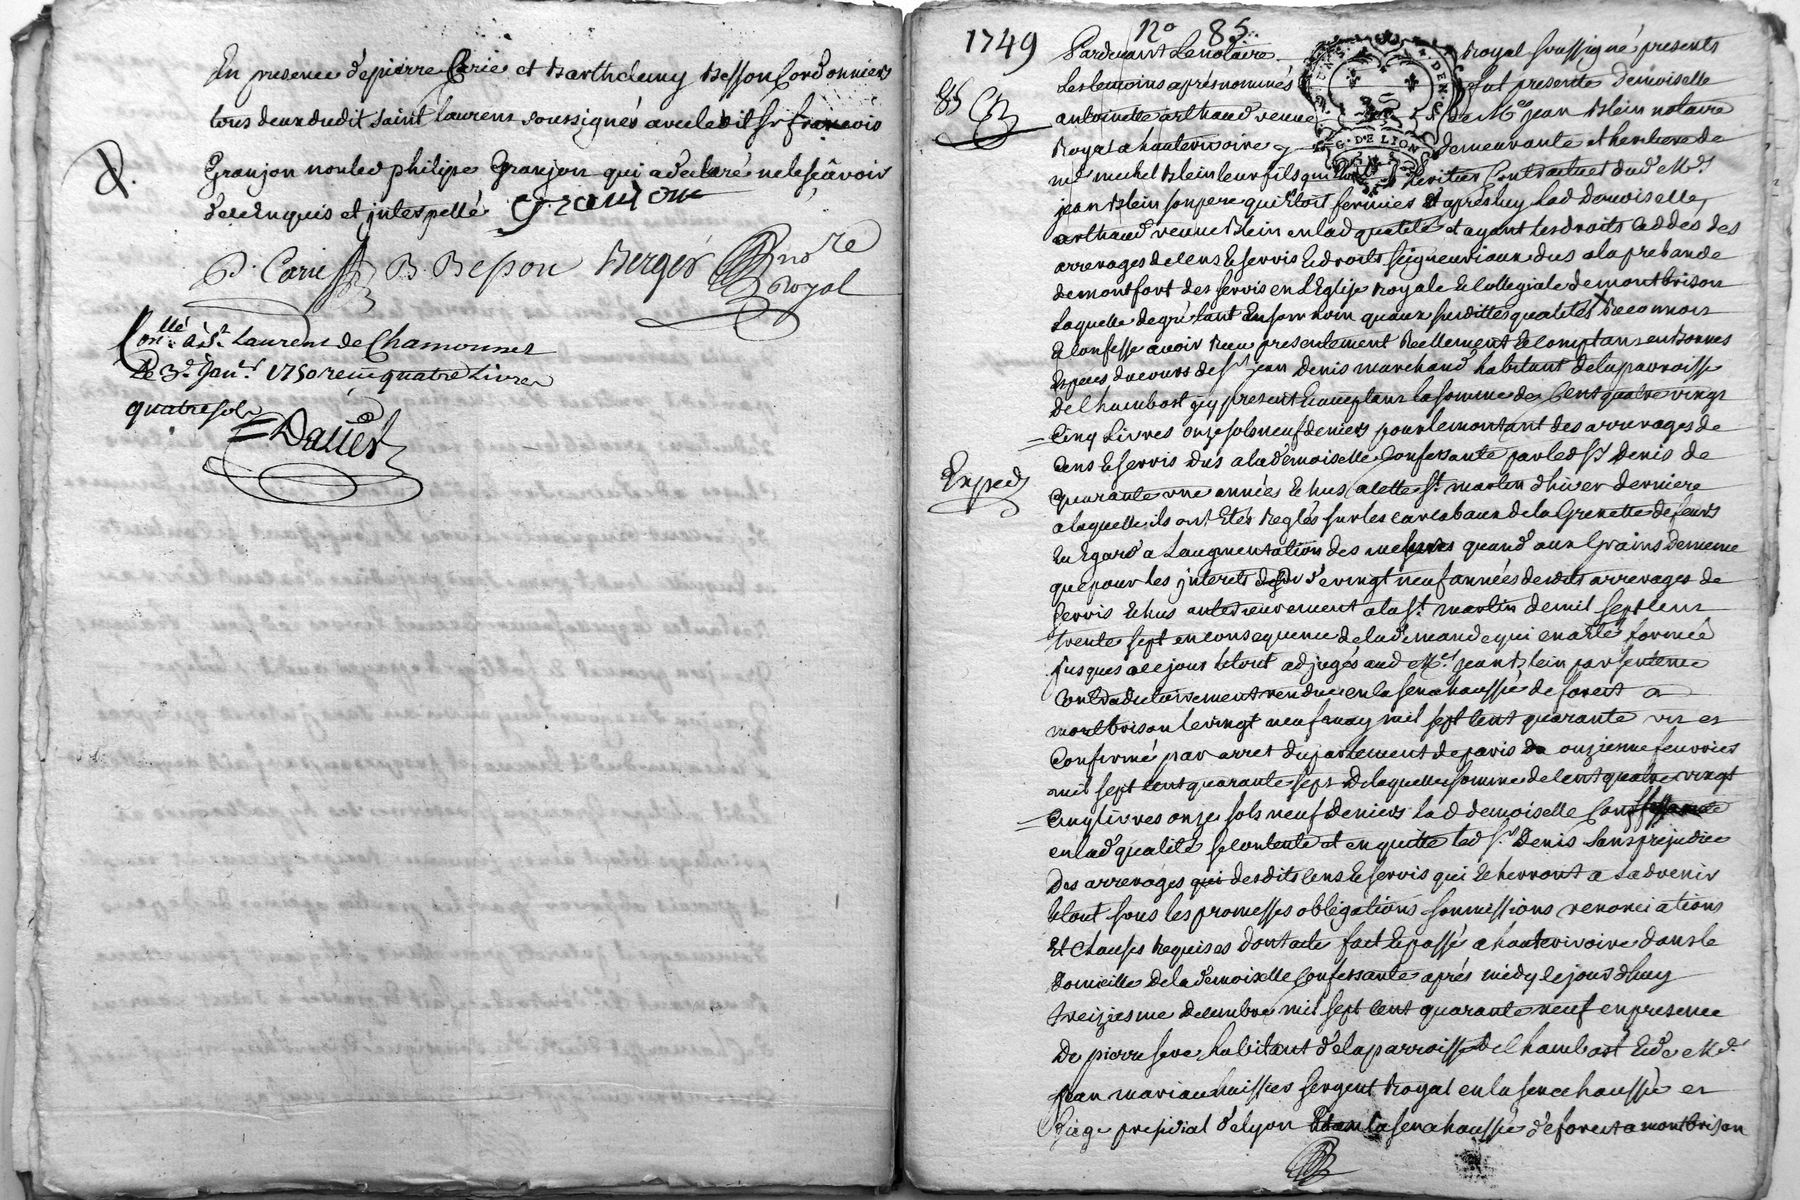 En presence de pierre Carie et Barthelemy Besson Cordonniers
tous deux dudit saint Laurens soussignés avec ledit Sr francois
Granjon non led philipe Granjon qui a declaré ne le sçâvoir
de ce Enquis et jnterpellé Granjon
P. Carie B. Besson Berger nore
Royal
Conllé à St Laurens de Chamousset
le 3e Janr 1750 receu quatre Livres
quatre sols
Dalier
1749 No 85.
85
Pardevant Le notaire Royal soussigné presents
Les temoins aprés nommés fut presente demoiselle
antoinette arthaud veuve de Me jean Blein notaire
Royal a hauterivoire y demeurante et heritiere de
me michel Blein leur fils qui heritier Contractuel dud Me
jean Blein son pere qui Etoit fermier Et apres luy lad demoiselle
arthaud veuve Blein en lad qualité et ayant les droits ceddés des
arrerages de Cens & servis & droits seigneuriaux dus a la prebande
de montfort des servis en L'Eglise Royale & Collegiale de montbrison
Laquelle de gré tant En son nom quaux susdittes qualités Reconnois
& Confesse avoir Receu presentement Reellement & Comptant en bonnes
Especes du cours de Sr jean Denis marchand habitant de la parroisse
de Chambost icy present & acceptant la somme de Cent quatre vingt
Cinq Livres onze sols neuf deniers pour le montant des arrerages de
Cens & servis dus a la demoiselle Confessante par led Sr Denis de
quarante une années Echus a cette St martin d'hiver derniere
Exped
a laquelle ils ont Etés Reglés sur les carcabaux de la Grenette de feurs
Eu Egard a Laugmentation des mesures quand aux Grains de meme
que pour les jnterets de vingt neuf années desdits arrerages de
servis Echus anterieurement a la St martin de mil sept cent
trente sept en consequence de la demande qui en a été formée
jusques a ce jour le tout adjugés aud Me jean Blein par sentence
Contradictoirement rendue en la senechaussée de forest a
montbrison le vingt neuf may mil sept cent quarante un et
Confirmé par arret du parlement de paris du onzieme feuvrier
mil sept cent quarante sept De laquelle somme de Cent quatre vingt
Cinq livres onze sols neuf deniers Lad demoiselle Confessante
en lad qualité se contente et en quitte led Sr Denis Sans prejudice
Des arrerages qui desdits Cens & servis qui Echerront a Ladvenir
le tout sous les promesses obligations soumissions renonciations
Et Clauses Requises dont acte fait & passé a hauterivoire dans le
Domicille De la demoiselle Confessante aprés midy le jourd'huy
treiziesme decembre mil sept Cent quarante neuf en presence
De pierre seve habitant de la parroisse de Chambost & de Me
jean mariau huissier sergent Royal en la senechaussée et
siege presidial de lyon la senechaussée de forest a montbrison